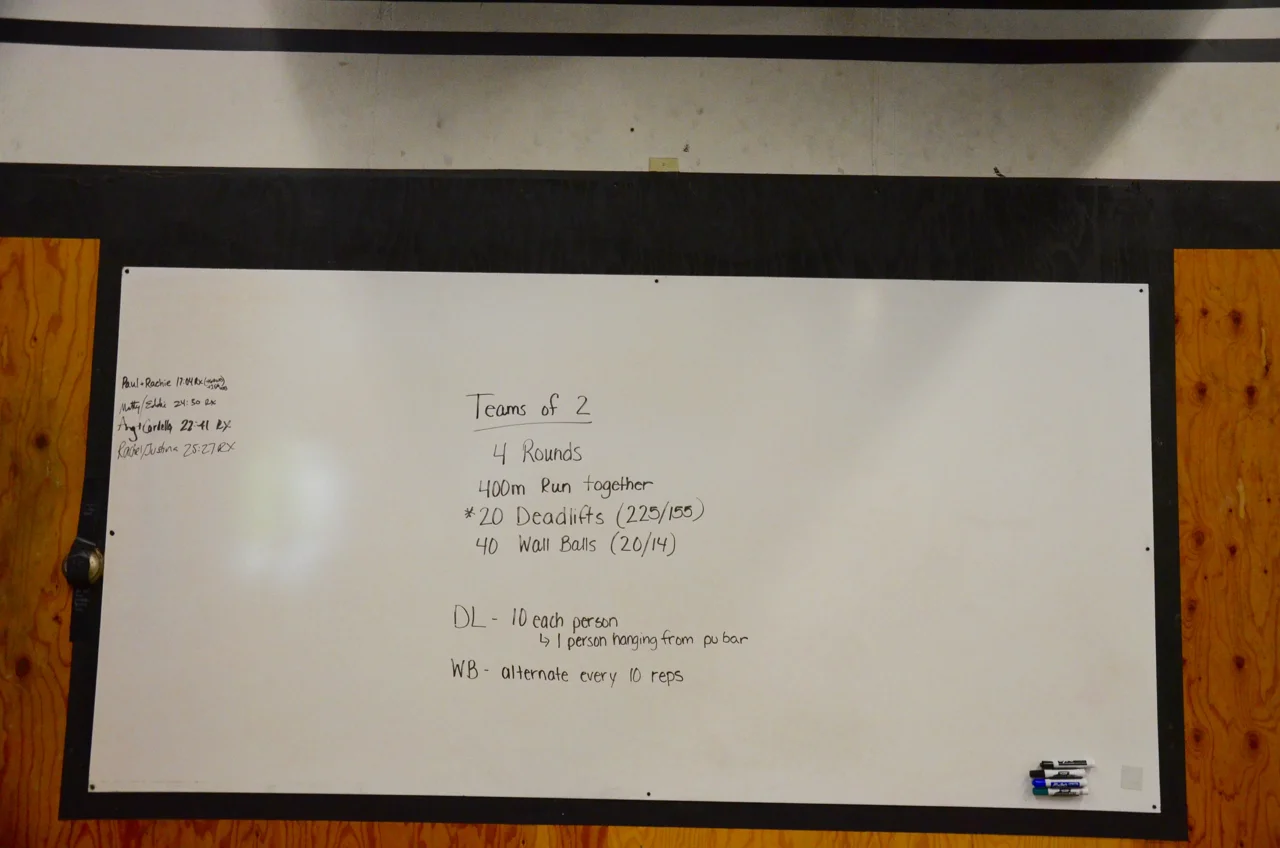 Paul + Rachie 17:04 Rx
Matty/Eddie 24:50 Rx
Ang + Cordella 22:41 RX
Rachel/Justina 25:27 RX
Teams of 2
4 Rounds
400m Run together
*20 Deadlifts (225/155)
40 Wall Balls (20/14)
DL - 10 each person
↳ 1 person hanging from pu bar
WB - alternate every 10 reps